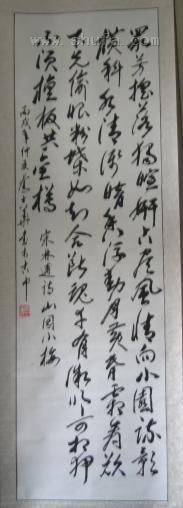 眾芳搖落獨暄妍占尽風情向小園疏影
橫斜水清淺暗香浮動月黃昏霜禽欲
下先偷眼粉蝶如知合斷魂幸有微吟可相狎
不須檀板共金樽 宋林逋詩 山園小梅
丙戌年仲夏